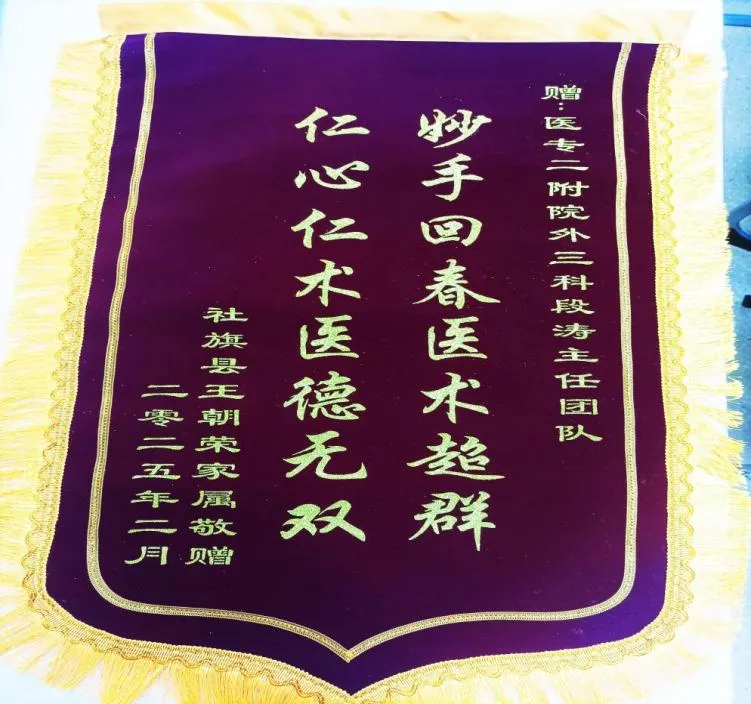 赠:医专二附院外三科段涛主任团队
妙手回春医术超群
仁心仁术医德无双
社旗县王朝荣家属敬赠
二零二五年二月